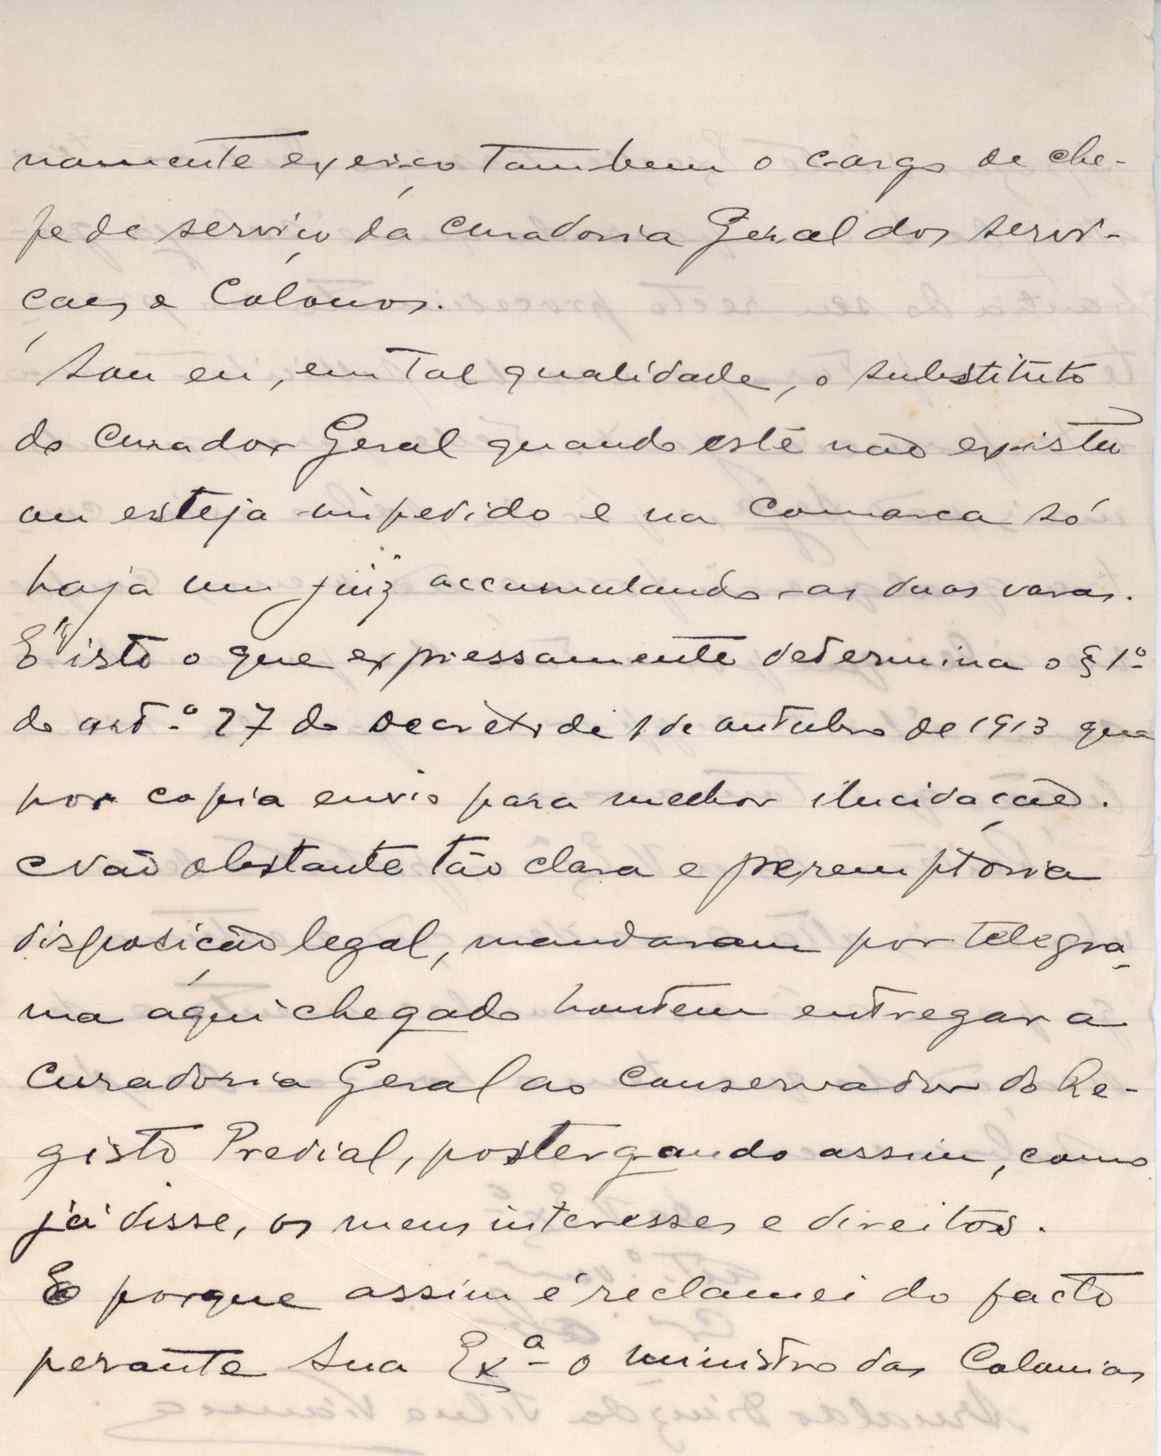 namente exerço tambem o cargo de che-
fe de serviço da Curadoria Geral dos servi-
çaes e Colonos.
Sou eu, em tal qualidade, o substituto
do Curador Geral quando este não exista
ou esteja impedido e na Comarca só
haja um juiz accumulando as duas varas.
É isto o que expressamente determina o § 1º
do artº 27 do Decreto de 1 de outubro de 1913 que
por copia envio para melhor ilucidação.
Não obstante tão clara e peremptoria
disposição legal, mandaram por telegra-
ma aqui chegado hontem entregar a
Curadoria Geral ao Conservador do Re-
gisto Predial, postergando assim, como
já disse, os meus interesses e direitos.
E porque assim é reclamei do facto
perante Sua Exª o ministro das Colonias